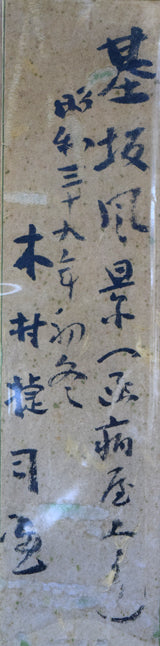 基坂風景（医病屋上より）
昭和三十九年初冬
木村捷司画